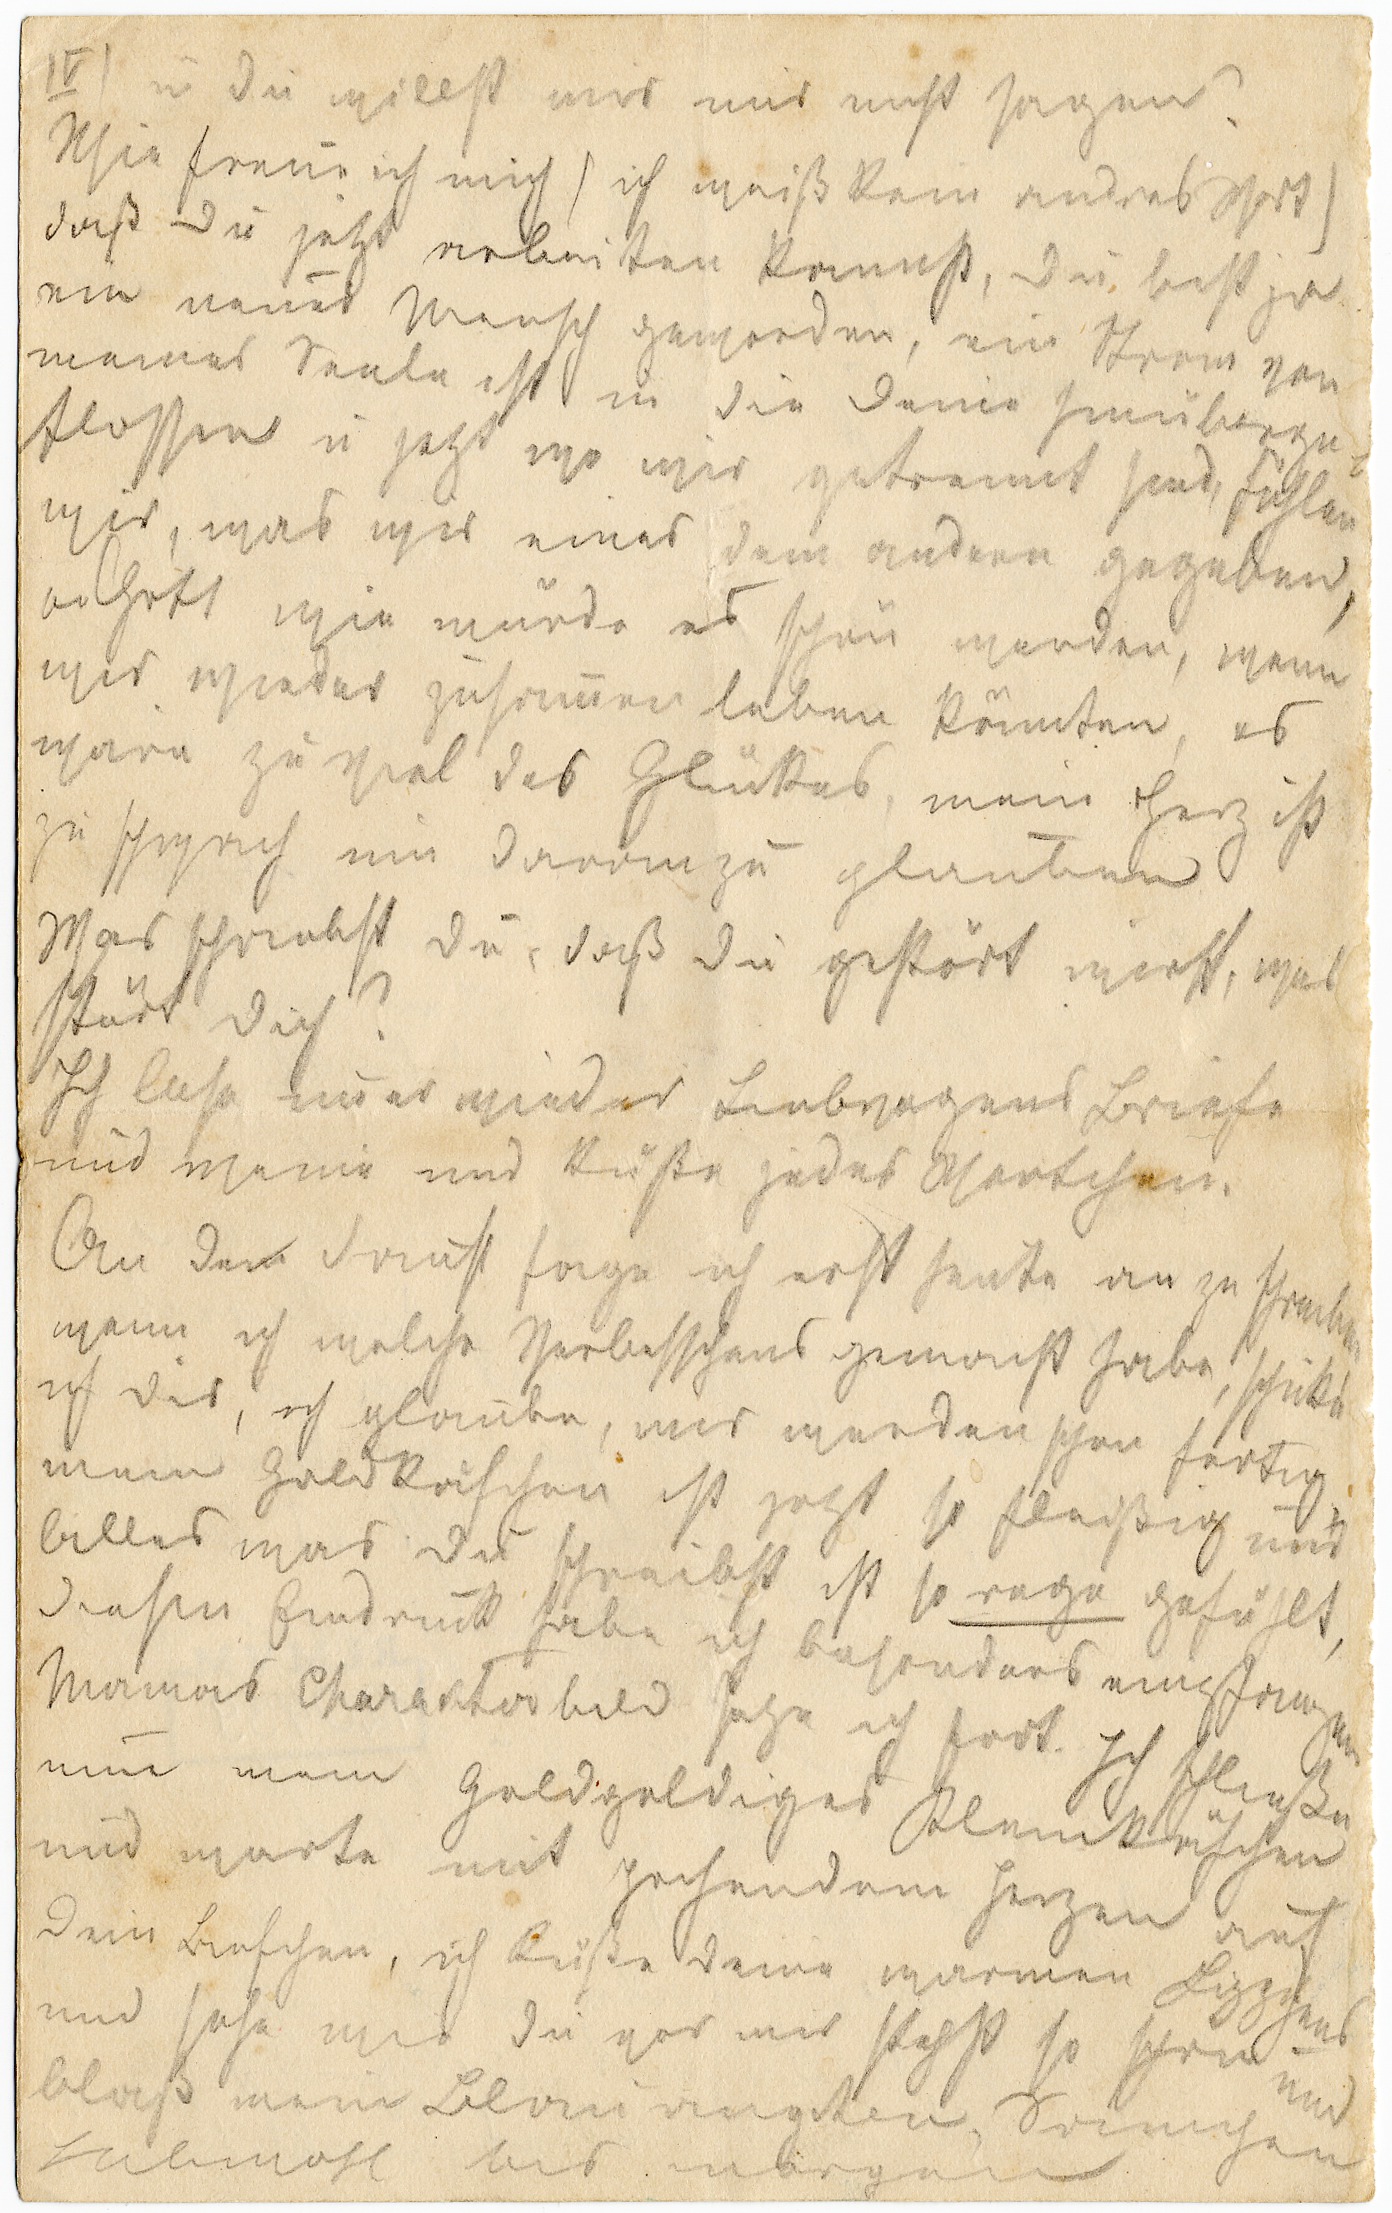 IV) u Du willst mir nur nicht sagen?
Wie freue ich mich (ich weiß kein andres Wort)
daß Du jetzt arbeiten kannst, Du bist ja
ein neuer Mensch geworden, ein Strom von
meiner Seele ist in die Deine hinüberge-
flossen u jetzt wo wir getrennt sind, fühlen
wir, was wir einer dem andern gegeben,
o Gott wie würde es schön werden, wenn
wir wieder zusammen leben könnten, es
wäre zu viel des Glückes, mein Herz ist
zu schwach um daran zu glauben
Was schreibst Du, daß Du gestört wirst, was
stört Dich?
Ich lese immer wieder Briefe
und weine und küße jedes Wörtchen.
An den Faust fange ich erst heute an zu schreiben
wenn ich welche gemacht habe, schicke
ich Dir, ich glaube, wir werden schon fertig.
mein ist jetzt so fleißig und
alles was Du schreibst ist so rege gefühlt,
diesen Eindruck habe ich besonders empfangen
Mamas Charakterbild setze ich fort. Ich schließe
nun mein goldgoldiges
und warte mit pochendem Herzen auf
Dein Briefchen, ich küße Deine warmen
und sehe wie Du vor mir stehst so schön und
blaß mein
Lebwohl bis morgen